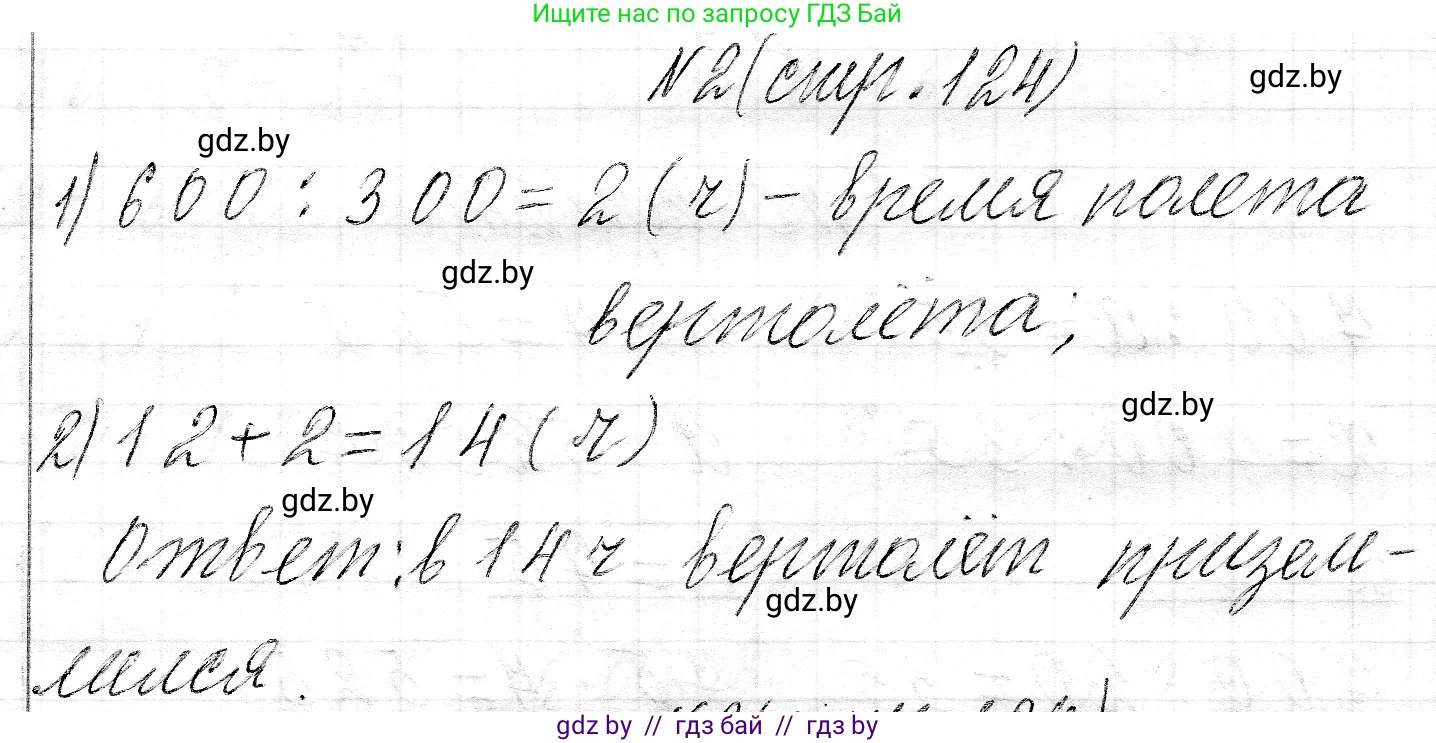 Ищите нас по запросу ГДЗ Бай
N2(стр. 124)
gdz.by
gdz.by
1) 600 : 300 = 2 (ч) - время полета
gdz.by
вертолёта;
gdz.by
2) 12 + 2 = 14 (ч)
gdz.by
Ответ: в 14 ч вертолёт призем-
gdz.by
лился.
gdz.by // гдз бай // гдз by